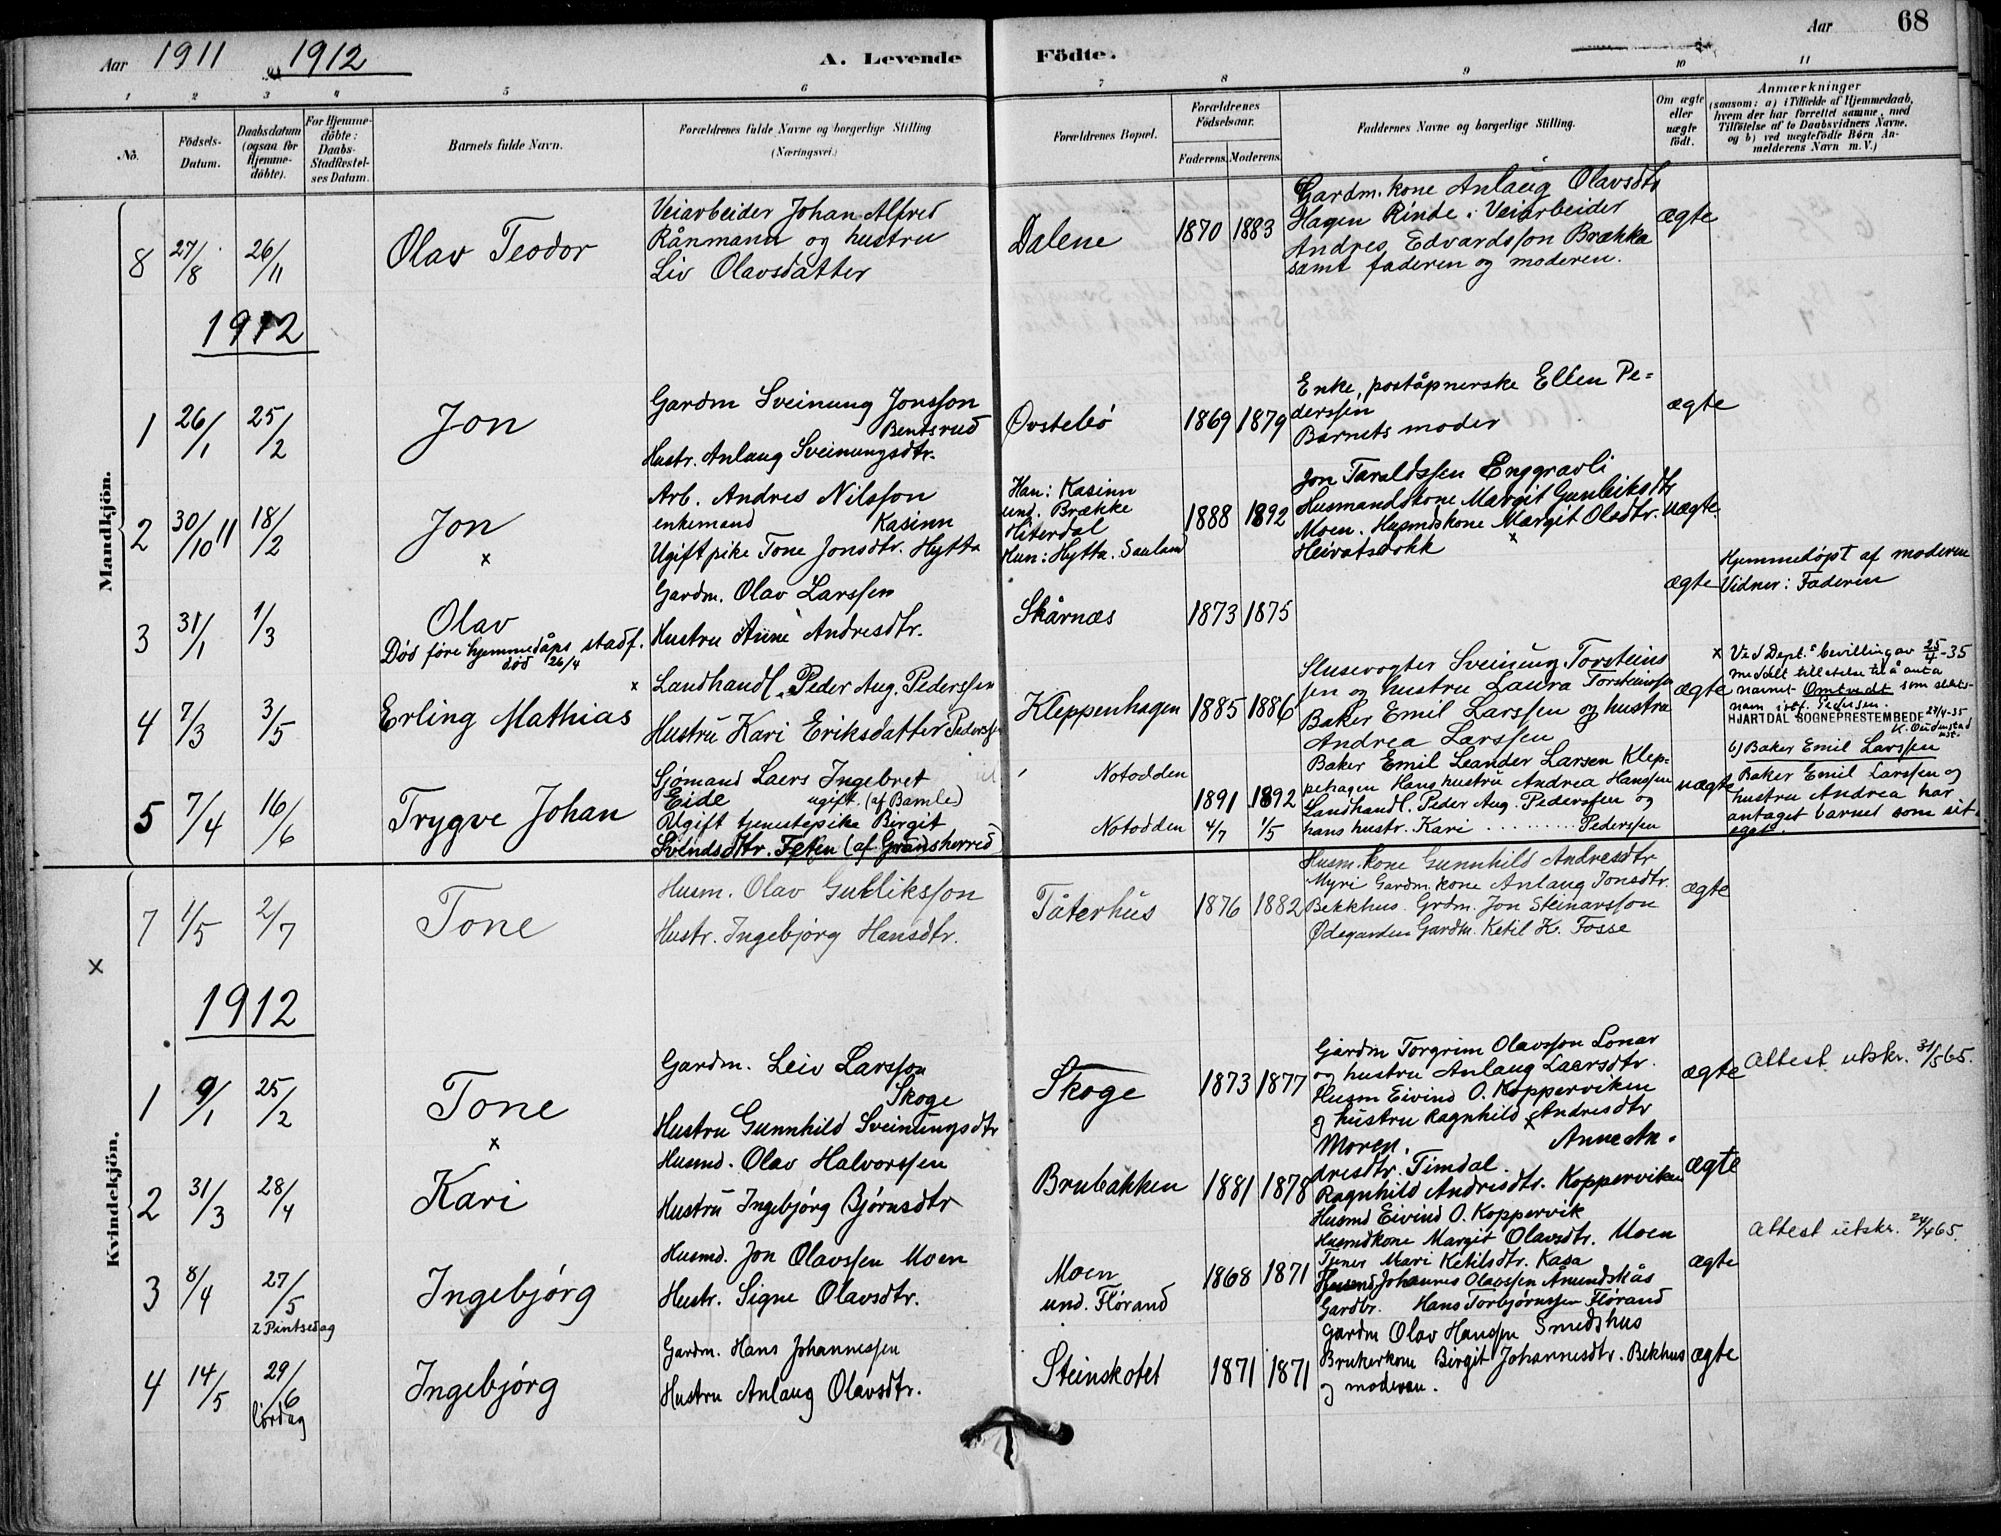 Aar 1911 og 1912
A. Levende
Födte.
Aar
68
1 2 3 4 5 6 7 8 9 10 11
No.
Födsels-Datum.
Daabsdatum (ogsaa for Hjemme-döbte).
For Hjemme-döbte: Daabs-Stadfæstel-ses Datum.
Barnets fulde Navn.
Forældrenes fulde Navne og borgerlige Stilling
(Næringsvei.)
Forældrenes Bopæl.
Forældrenes Födselsaar.
Faderens. Moderens.
Faddernes Navne og borgerlige Stilling.
Om ægte eller uægte födt.
Anmærkninger
(saasom: a) i Tilfælde af Hjemmedaab, hvem der har forrettet samme, med Tilföielse af to Daabsvidners Navne, og b) ved uægtefödte Börn Anmelderens Navn m. V.)
Mandkjön.
8 27/8 26/11 Olav Teodor
Veiarbeider Johan Alfred
Rånmann og hustru
Liv Olavsdatter
Dalene 1870 1883
Gardm. kone Anlaug Olavsdtr
Hagen Rinde. Veiarbeider
Andres Edvardsson Brække
samt faderen og moderen.
ægte
1912
1 26/1 25/2 Jon
Gardm Sveinung Jonsson
Bentsrud
Hustr. Anlaug Sveinungsdtr.
Ovstebö 1869 1879
Enke, poståpnerske Ellen Pe=
derssen
Barnets moder
ægte
2 30/10 11 18/2 Jon
x
Arb. Andres Nilsson
enkemand Kasinn
Ugift pike Tone Jonsdtr. Hytta
Han: Kasinn
und. Brække
Hiterdal
Hun: Hytta. Sauland
1888 1892
Jon Taraldssen Enggravli
Husmandskone Margit Gunleiksdtr
Moen. Husmdskone Margit Olsdtr.
Heivatsdokk
x
uægte.
3 31/1 1/3 Olav
Död före hjemmedåps stadf.
död 26/4
Gardm. Olav Larssen
Hustru Anne Andresdtr.
Skårnæs 1873 1875
ægte
Hjemmedöpt af moderen
Vidner: Faderen
4 7/3 3/5 Erling Mathias
x
Landhandl. Peder Aug. Pederssen
Hustru Kari Eriksdatter Pederssen
Kleppenhagen 1885 1886
Slusevogter Sveinung Torsteins
sen og hustru Laura Torsteinssen
Baker Emil Larssen og hustru
Andrea Larssen
ægte
x Ved Dept.s bevilling av 25/4-35
meddelt tillatelse til å anta
navnet Omtvedt som slekts-
nam istf. Pedersen.
HJARTDAL SOGNEPRESTEMBEDE 27/4-35
5 7/4 16/6 Trygve Johan
Sjömand Laers Ingebret
Eide ugift (af Bamle)
Ugift tjenestepike Birgit
Svendsdtr. Feten (af Gransherred)
Notodden
Notodden
1891 4/7 1892 1/5
Baker Emil Leander Larsen Klep-
pehagen Hans hustru Andrea Hanssen
Landhandl. Peder Aug. Pederssen og
hans hustr. Kari .......... Pederssen
uægte
b) Baker Emil Larssen
Baker Emil Larssen og
hustru Andrea har
antaget barnet som sit
eget.
Kvindekjön.
7 1/5 2/7 Tone
Husm. Olav Gulliksson
Hustr. Ingebjörg Hansdtr.
Tåterhus 1876 1882
Husm. kone Gunnhild Andresdtr
Myri Gardm. kone Anlaug Jonsdtr.
Bekkhus. Grdm. Jon Steinarsson
Ödegarden Gardm. Ketil K. Fosse
ægte
x
1912
1 9/1 25/2 Tone
x
Gardm. Leiv Larsson
Skoge
Hustru Gunnhild Sveinungsdtr
Skoge 1873 1877
Gjardm Torgrim Olavsson Lonar
og hustru Anlaug Laersdtr.
Husm Eivind O. Kopperviken
og hustru Ragnhild Andresdtr
x
ægte
Attest utskr. 31/5 65.
2 31/3 28/4 Kari
Husmd. Olav Halvorssen
Hustru Ingebjörg Björnsdtr
Brubakken 1881 1878
Moren. Anne An-
dresdtr. Timdal.
Ragnhild Andresdtr. Kopperviken
Husmd Eivind O. Koppervik
ægte
3 8/4 27/5
2 Pintsedag
Ingebjörg
Husmd. Jon Olavssen Moen
Hustr. Signe Olavsdtr.
Moen
und. Flörand
1868 1871
Husmdkone Margit Olavsdtr. Moen
Tjener Mari Ketilsdtr. Kasa
Husmd Johannes Olavssen Åmundskås
Gardbr. Hans Torbjörnssen Flörand
ægte
Attest utskr. 24/4 65.
4 14/5 29/6
lördag
Ingebjörg
Gardm. Hans Johannessen
Hustru Anlaug Olavsdtr.
Steinskotet 1871 1871
Gardm Olav Hanssen Smedshus
Brukerkone Birgit Johannesdtr. Bekhus
og moderen.
ægte